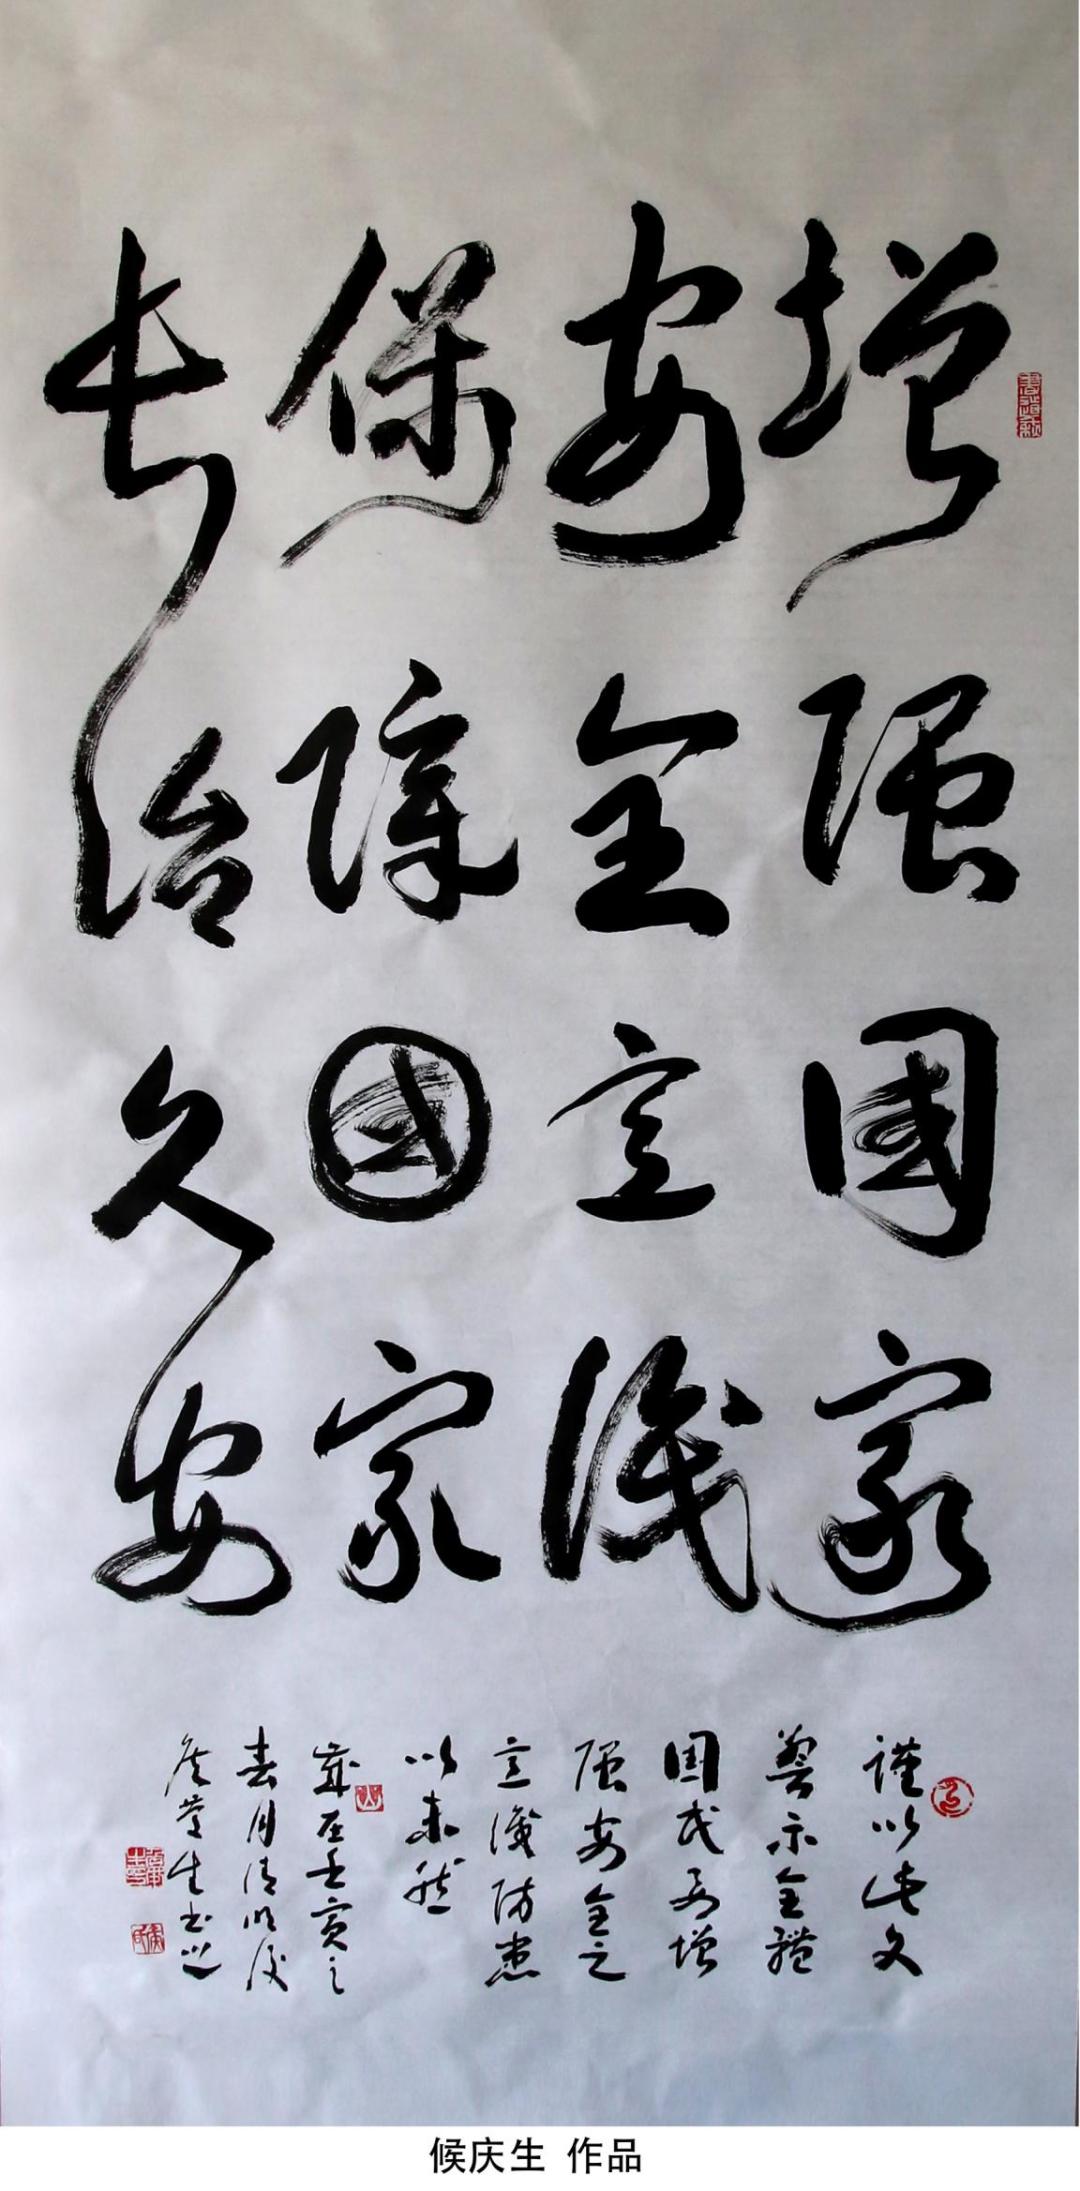 增强國家
安全意識
保障國家
长治久安
謹以此文
警示全體
国民要增
强安全之
意識防患
以未然
歲在壬寅之
春月清明後
侯慶生书
候庆生 作品